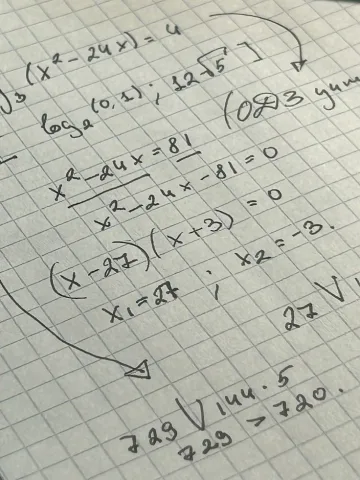 )₃ (x² - 24x) = 4
log₂(0,1) ; 12√5 ]
(ОДЗ учит
x² - 24x = 81
x² - 24x - 81 = 0
(x - 27)(x + 3) = 0
x₁ = 27 ; x₂ = -3.
27 V
729 V 144 · 5
729 > 720.